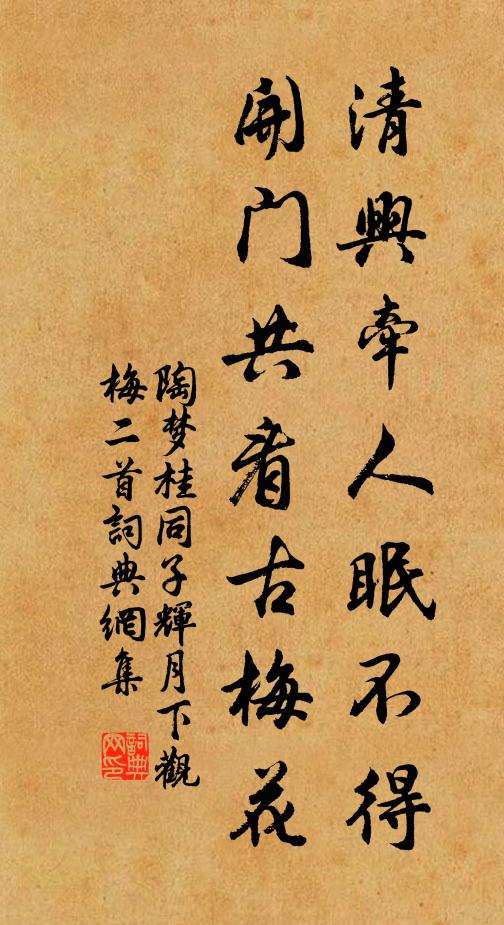 清興牽人眠不得
開门共看古梅花
陶梦桂同子輝月下觀
梅二首詞典網集
詞典
网印